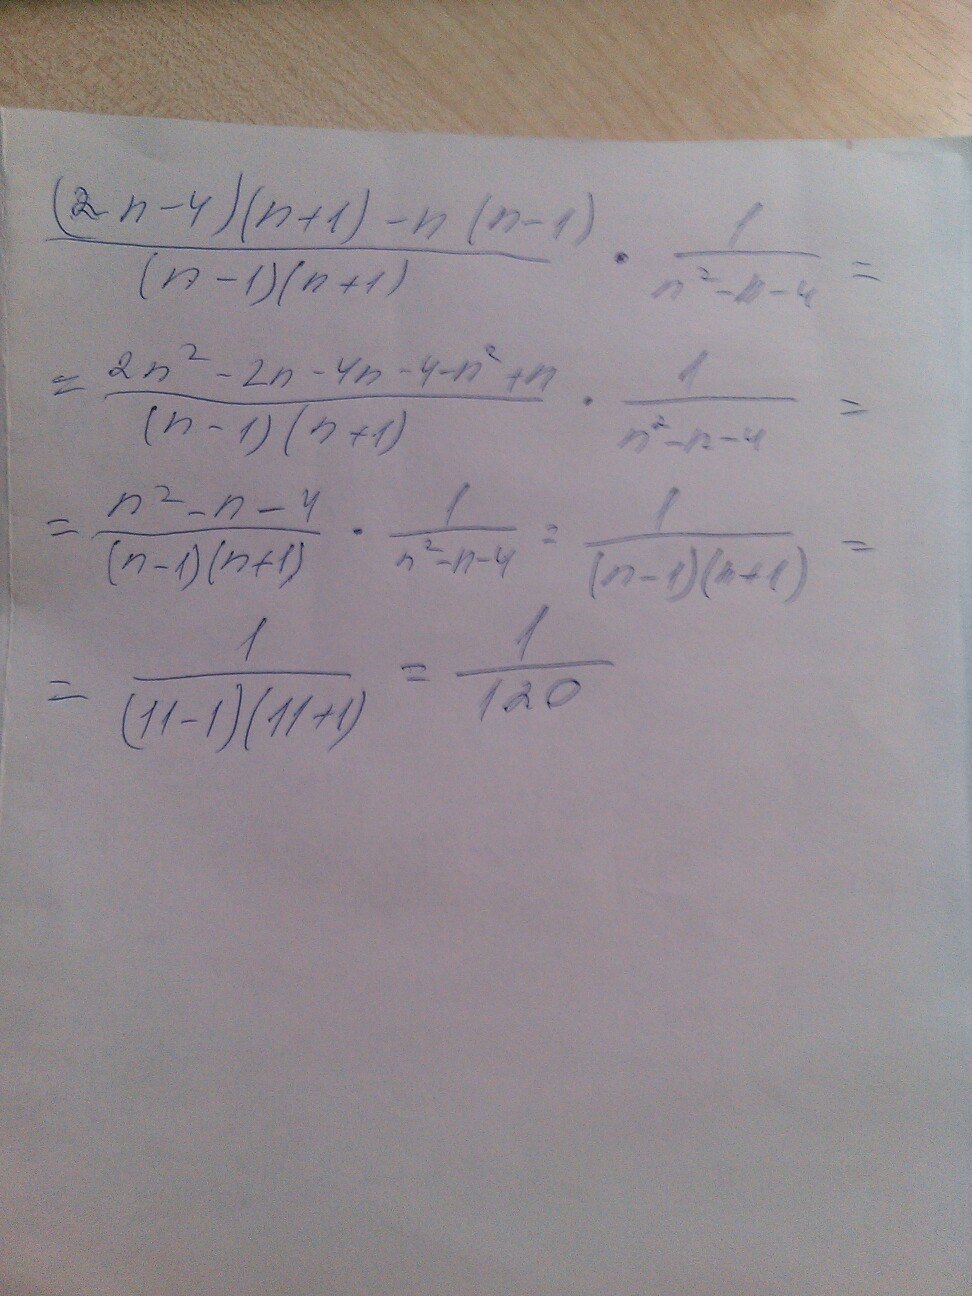 ((2n-4)(n+1)-n(n-1))/((n-1)(n+1)) · 1/(n²-n-4) =
= (2n²-2n-4n-4-n²+n)/((n-1)(n+1)) · 1/(n²-n-4) =
= (n²-n-4)/((n-1)(n+1)) · 1/(n²-n-4) = 1/((n-1)(n+1)) =
= 1/((11-1)(11+1)) = 1/120